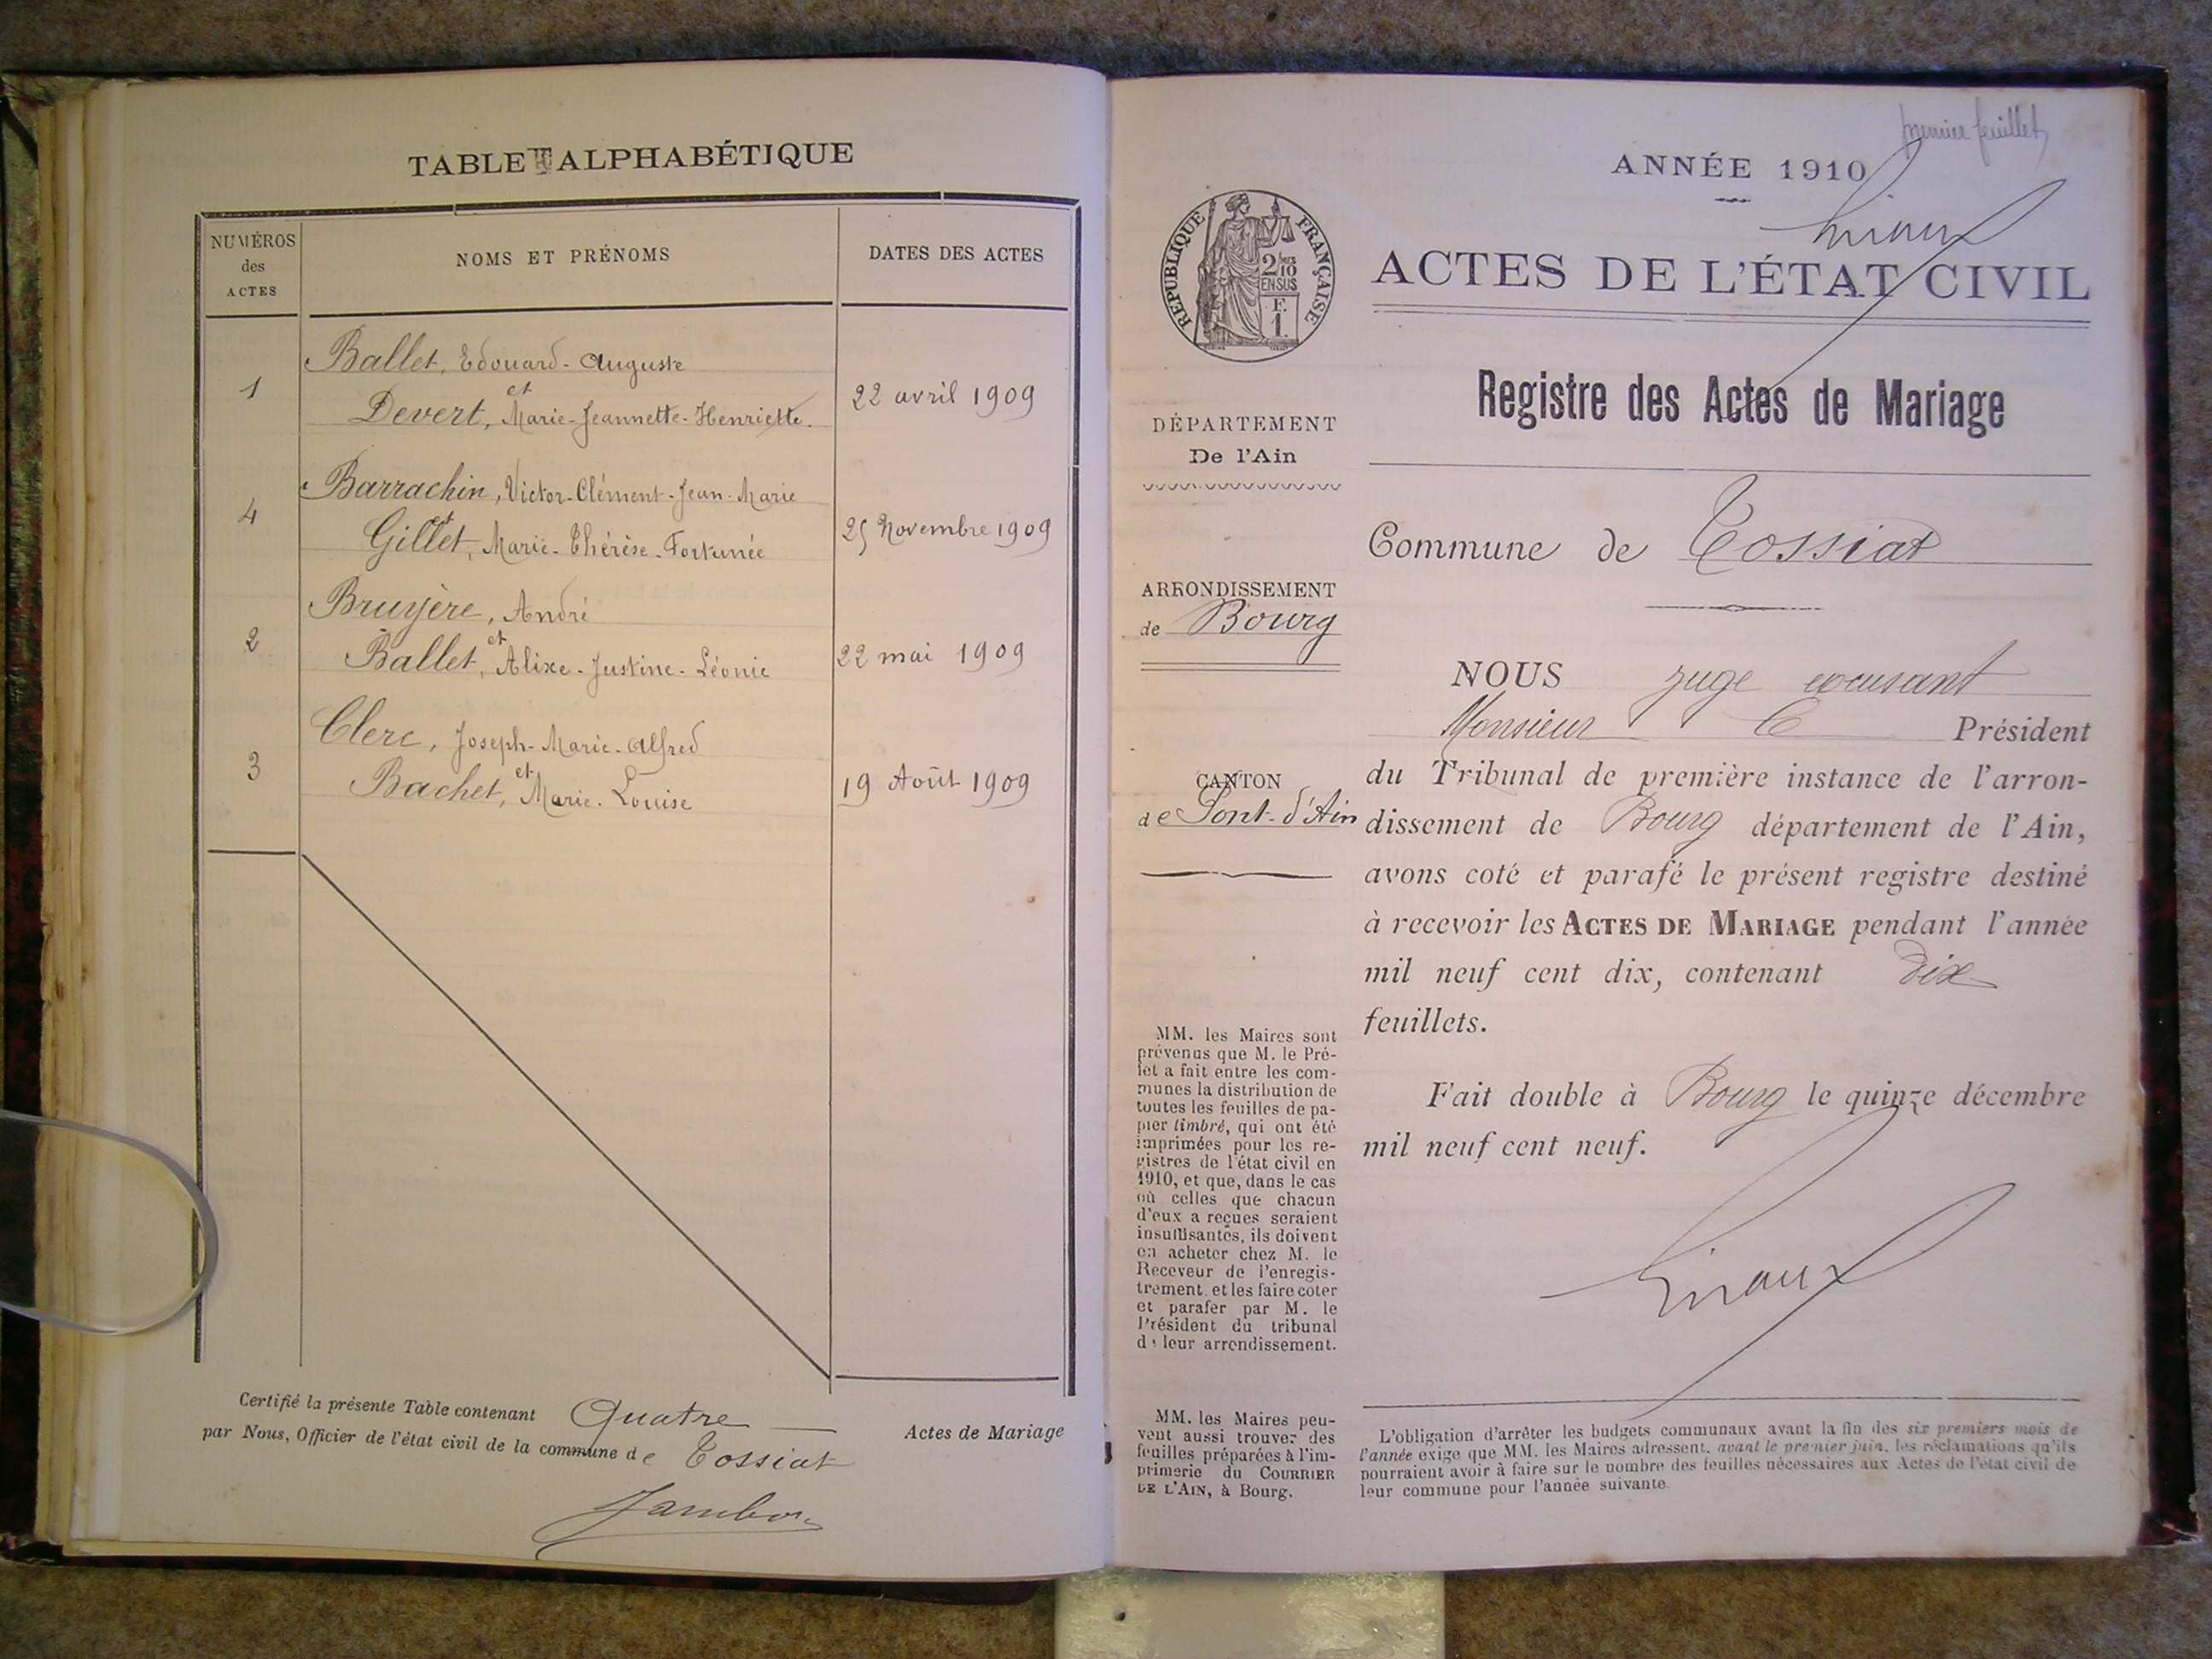 TABLE ALPHABÉTIQUE
NUMÉROS
des
ACTES
NOMS ET PRÉNOMS
DATES DES ACTES
1
Ballet, Edouard-Auguste
et
Devert, Marie-Jeannette-Henriette.
22 avril 1909
4
Barrachin, Victor-Clément-Jean-Marie
et
Gillet, Marie-Thérèse-Fortunée
25 Novembre 1909
2
Bruyère, André
et
Ballet, Alixe-Justine-Léonie
22 mai 1909
3
Clerc, Joseph-Marie-Alfred
et
Bachet, Marie-Louise
19 Août 1909
Certifié la présente Table contenant Quatre
Actes de Mariage
par Nous, Officier de l'état civil de la commune de Tossiat
premier feuillet
ANNÉE 1910
RÉPUBLIQUE FRANÇAISE
2/10
EN SUS
F.
1.
ACTES DE L'ÉTAT CIVIL
Registre des Actes de Mariage
DÉPARTEMENT
De l'Ain
Commune de Tossiat
ARRONDISSEMENT
de Bourg
CANTON
de Pont-d'Ain
NOUS juge
Monsieur le Président
du Tribunal de première instance de l'arron-
dissement de Bourg département de l'Ain,
avons coté et parafé le présent registre destiné
à recevoir les ACTES DE MARIAGE pendant l'année
mil neuf cent dix, contenant dix
feuillets.
Fait double à Bourg le quinze décembre
mil neuf cent neuf.
MM. les Maires sont
prévenus que M. le Pré-
fet a fait entre les com-
munes la distribution de
toutes les feuilles de pa-
pier timbré, qui ont été
imprimées pour les re-
gistres de l'état civil en
1910, et que, dans le cas
où celles que chacun
d'eux a reçues seraient
insuffisantes, ils doivent
en acheter chez M. le
Receveur de l'enregis-
trement, et les faire coter
et parafer par M. le
Président du tribunal
de leur arrondissement.
MM. les Maires peu-
vent aussi trouver des
feuilles préparées à l'im-
primerie du COURRIER
DE L'AIN, à Bourg.
L'obligation d'arrêter les budgets communaux avant la fin des six premiers mois de
l'année exige que MM. les Maires adressent, avant le premier juin, les réclamations qu'ils
pourraient avoir à faire sur le nombre des feuilles nécessaires aux Actes de l'état civil de
leur commune pour l'année suivante.